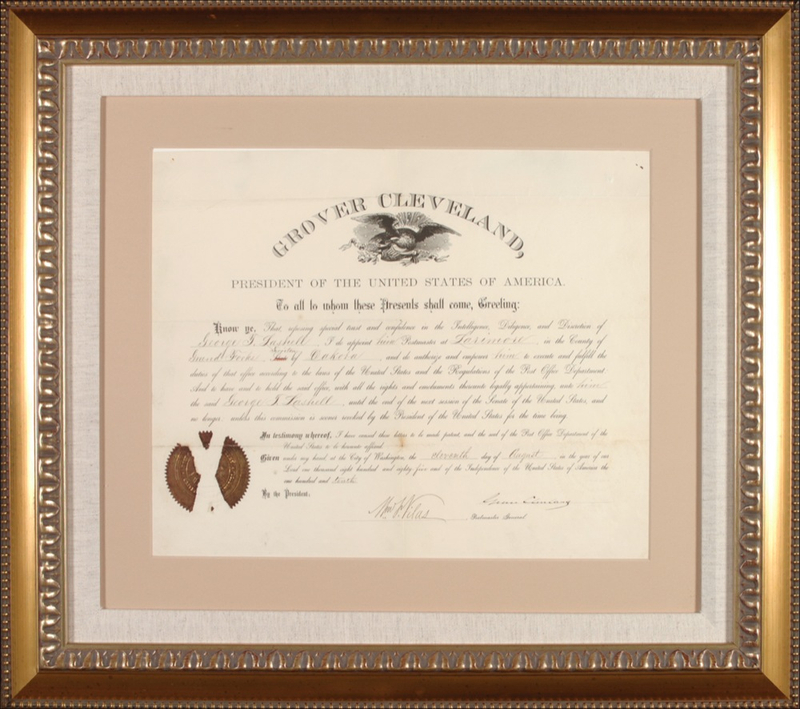 GROVER CLEVELAND,
PRESIDENT OF THE UNITED STATES OF AMERICA.
To all to whom these Presents shall come, Greeting:
Know ye, That reposing special trust and confidence in the Intelligence, Diligence, and Discretion of
George F. I do appoint him Postmaster at Larimore, in the County of
Grand Forks Territory of Dakota, and do authorize and empower him to execute and fulfill the
duties of that office according to the laws of the United States and the Regulations of the Post Office Department
And to have and to hold the said office, with all the rights and emoluments thereunto legally appertaining, unto him
the said George F. until the end of the next session of the Senate of the United States, and
no longer, unless this commission is sooner revoked by the President of the United States for the time being.
In testimony whereof, I have caused these letters to be made patent, and the seal of the Post Office Department of the
United States to be hereunto affixed.
Given under my hand, at the City of Washington, the eleventh day of August, in the year of our
Lord one thousand eight hundred and eighty five and of the Independence of the United States of America the
one hundred and tenth.
By the President.
Grover Cleveland
Wm F. Vilas
Postmaster General